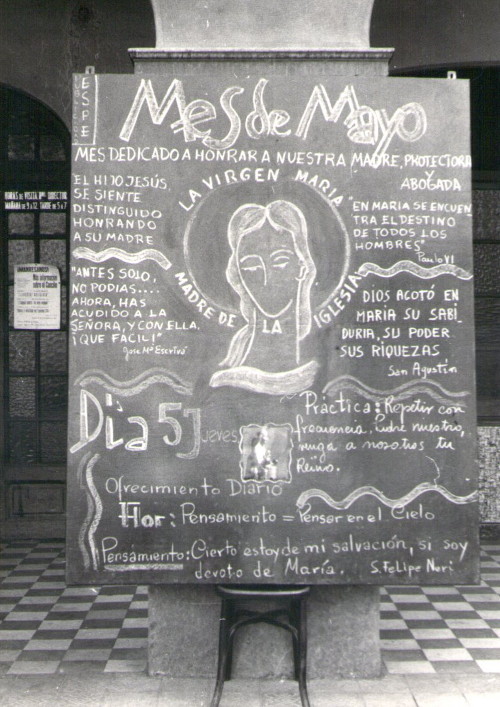 ESPE
Mes de Mayo
MES DEDICADO A HONRAR A NUESTRA MADRE, PROTECTORA
Y
ABOGADA
EL HIJO JESÚS,
SE SIENTE
DISTINGUIDO
HONRANDO
A SU MADRE
LA VIRGEN MARIA
MADRE DE LA IGLESIA
"EN MARIA SE ENCUEN
TRA EL DESTINO
DE TODOS LOS
HOMBRES"
Paulo VI
"ANTES SOLO,
NO PODIAS....
AHORA, HAS
ACUDIDO A LA
SEÑORA, Y CON ELLA,
¡QUE FACIL!"
Jose Mª Escrivá
DIOS ACOTÓ EN
MARIA SU SABI
DURIA, SU PODER
SUS RIQUEZAS
San Agustín
Día 5 Jueves
Práctica: Repetir con
frecuencia, Padre nuestro,
venga a nosotros tu
Reino.
Ofrecimiento Diario
Flor: Pensamiento = Pensar en el Cielo
Pensamiento: Cierto estoy de mi salvación, si soy
devoto de María. S. Felipe Neri
HORAS DE VISITA DEL DIRECTOR
MAÑANA de 9 a 12, TARDE de 5 a 7